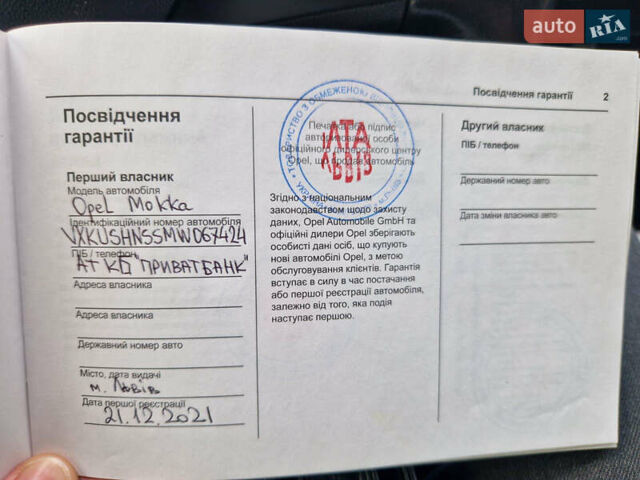 auto RIA .com
Посвідчення гарантії 2
Посвідчення
гарантії
Перший власник
Модель автомобіля
Opel Mokka
Ідентифікаційний номер автомобіля
VXKUSHNSSMW067424
ПІБ / телефон
АТ КБ "ПРИВАТБАНК"
Адреса власника
Адреса власника
Державний номер авто
Місто, дата видачі
м. Львів
Дата першої реєстрації
21.12.2021
ТОВАРИСТВО З ОБМЕЖЕНОЮ
УКРАЇНА
м.Львів
ІЛТА
ЛЬВІВ
Печатка або підпис
авторизованої особи
офіційного дилерського центру
Opel, що продав автомобіль
Згідно з національним
законодавством щодо захисту
даних, Opel Automobile GmbH та
офіційні дилери Opel зберігають
особисті дані осіб, що купують
нові автомобілі Opel, з метою
обслуговування клієнтів. Гарантія
вступає в силу в час постачання
або першої реєстрації автомобіля,
залежно від того, яка подія
наступає першою.
Другий власник
ПІБ / телефон
Державний номер авто
Дата зміни власника авто